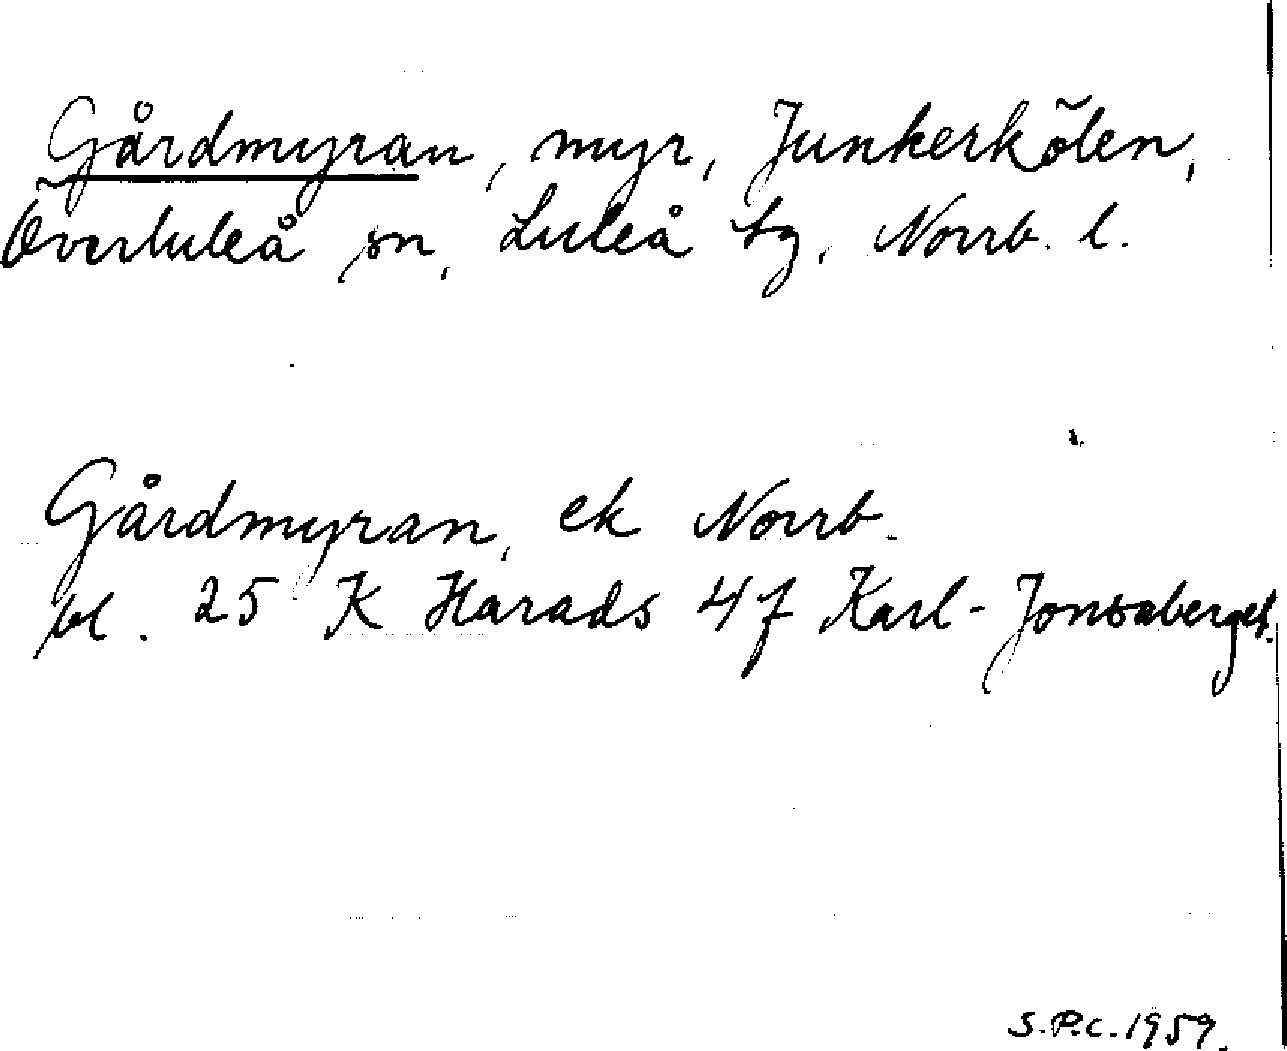 Gårdmyran, myr, Junkerkölen,
Överluleå sn, Luleå tg, Norrb. l.
Gårdmyran, ek Norrb.
bl. 25 K Harads 4f Karl-Jonsaberget.
S.P.C. 1959.